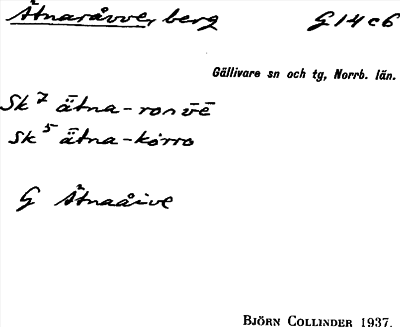 Ätnaråvve, berg G 14 c 6
Gällivare sn och tg, Norrb. län.
Sk 7 ätna-ronvē
Sk 5 ätna-korro
G Ätnaåive
BJÖRN COLLINDER 1937.